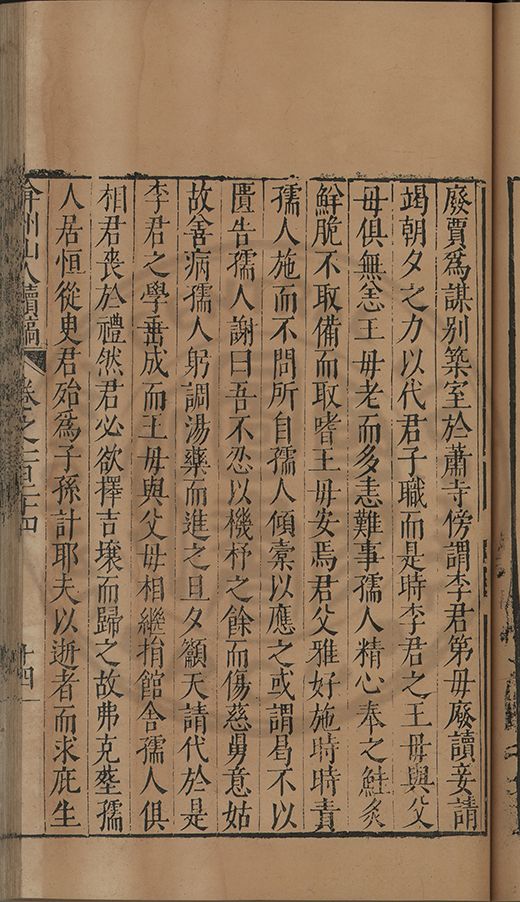 廢賈為謀別築室於蕭寺傍謂李君第毋廢讀妾請
竭朝夕之力以代君子職而是時李君之王母與父
母俱無恙王母老而多恚難事孺人精心奉之鮭炙
鮮脆不取備而取嗜王母安焉君父雅好施時時責
孺人施而不問所自孺人傾橐以應之或謂曷不以
匱告孺人謝曰吾不忍以機杼之餘而傷慈舅意姑
故善病孺人躬調湯藥而進之旦夕籲天請代於是
李君之學垂成而王母與父母相繼捐館舍孺人俱
相君喪於禮然君必欲擇吉壤而歸之故弗克塟孺
人居恒從史君殆為子孫計耶夫以逝者而求庇生
弇州山人續稿 卷之一百十四 十四